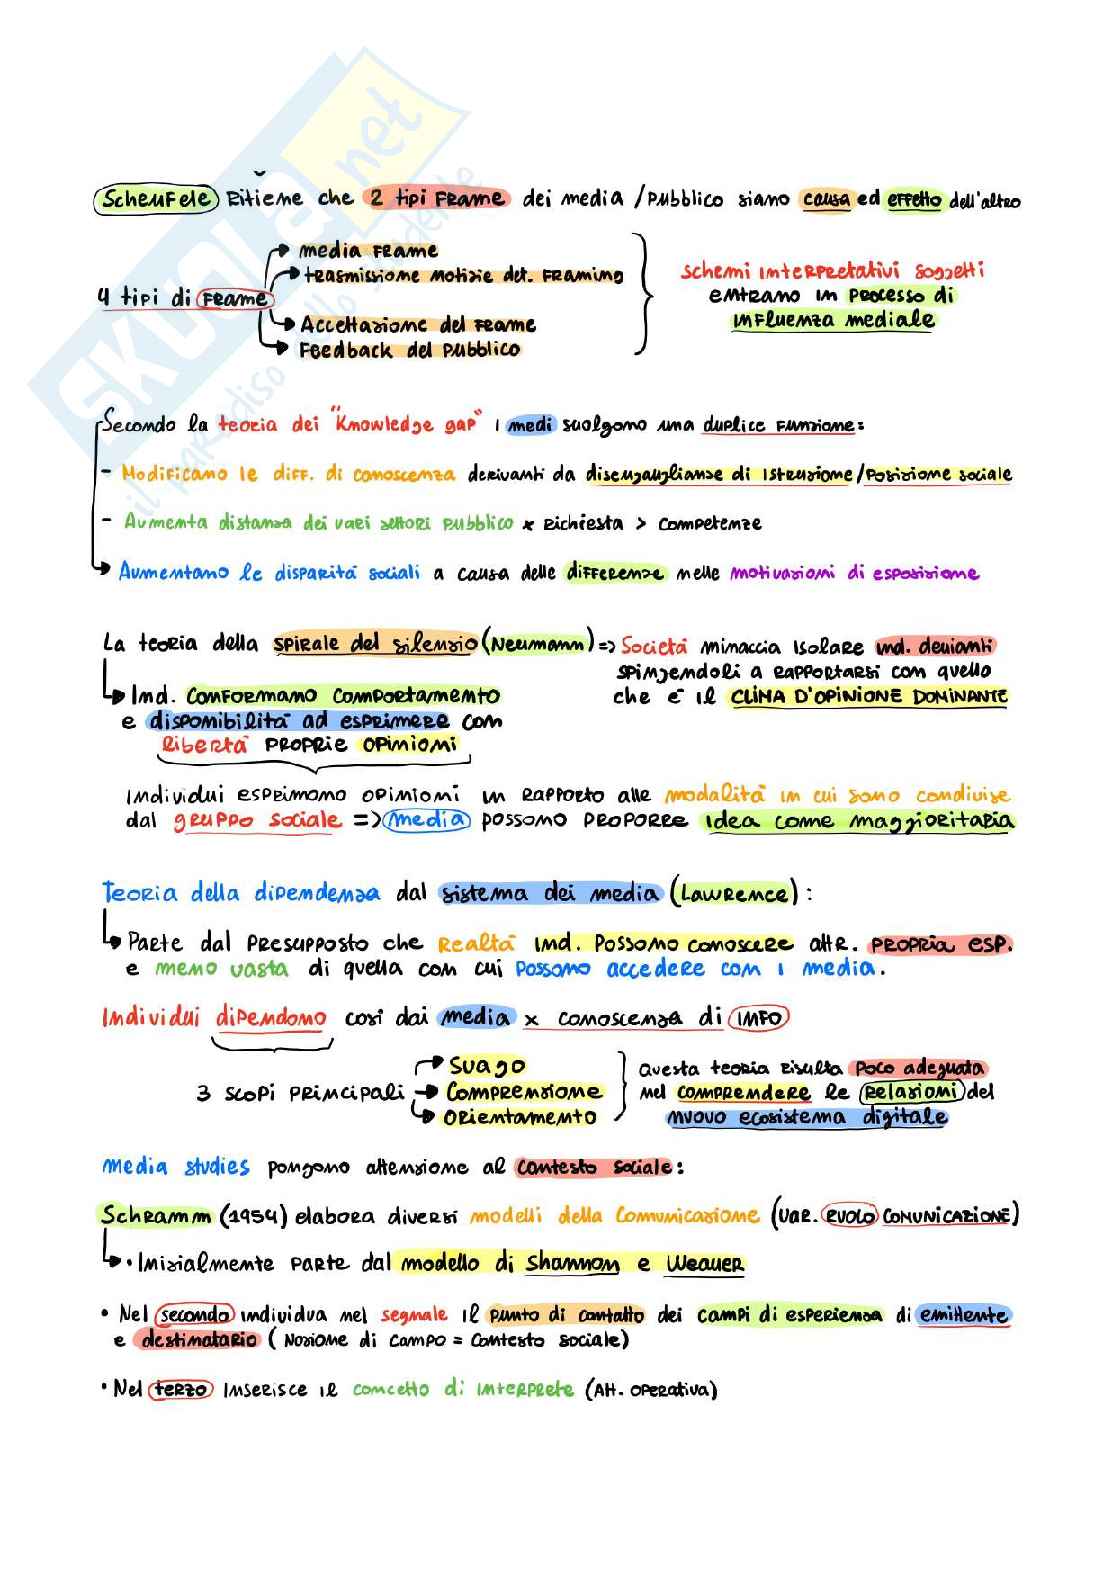 SKUOLA.net
il paradiso dello studente
Scheufele ritiene che 2 tipi frame dei media / pubblico siano causa ed effetto dell'altro
media frame
trasmissione notizie det. framing
4 tipi di frame
Accettazione del frame
Feedback del pubblico
schemi interpretativi soggetti
entrano in processo di
influenza mediale
Secondo la teoria dei "Knowledge gap" i medi svolgono una duplice funzione:
- Modificano le diff. di conoscenza derivanti da disuguaglianze di istruzione/posizione sociale
- Aumenta distanza dei vari settori pubblico x richiesta > competenze
Aumentano le disparità sociali a causa delle differenze nelle motivazioni di esposizione
La teoria della spirale del silenzio (Neumann) => Società minaccia isolare ind. devianti
spingendoli a rapportarsi con quello
che è il CLIMA D'OPINIONE DOMINANTE
Ind. conformano comportamento
e disponibilità ad esprimere con
libertà proprie opinioni
individui esprimono opinioni in rapporto alle modalità in cui sono condivise
dal gruppo sociale => media possono proporre idea come maggioritaria
Teoria della dipendenza dal sistema dei media (Lawrence):
Parte dal presupposto che realtà ind. possono conoscere attr. propria esp.
e meno vasta di quella con cui possono accedere con i media.
Individui dipendono così dai media x conoscenza di info
3 scopi principali
Svago
Comprensione
Orientamento
Questa teoria risulta poco adeguata
nel comprendere le relazioni del
nuovo ecosistema digitale
Media studies pongono attenzione al contesto sociale:
Schramm (1954) elabora diversi modelli della comunicazione (var. RUOLO COMUNICAZIONE)
• Inizialmente parte dal modello di Shannon e Weaver
• Nel secondo individua nel segnale il punto di contatto dei campi di esperienza di emittente
e destinatario (Nozione di campo = contesto sociale)
• Nel terzo inserisce il concetto di interprete (Att. operativa)